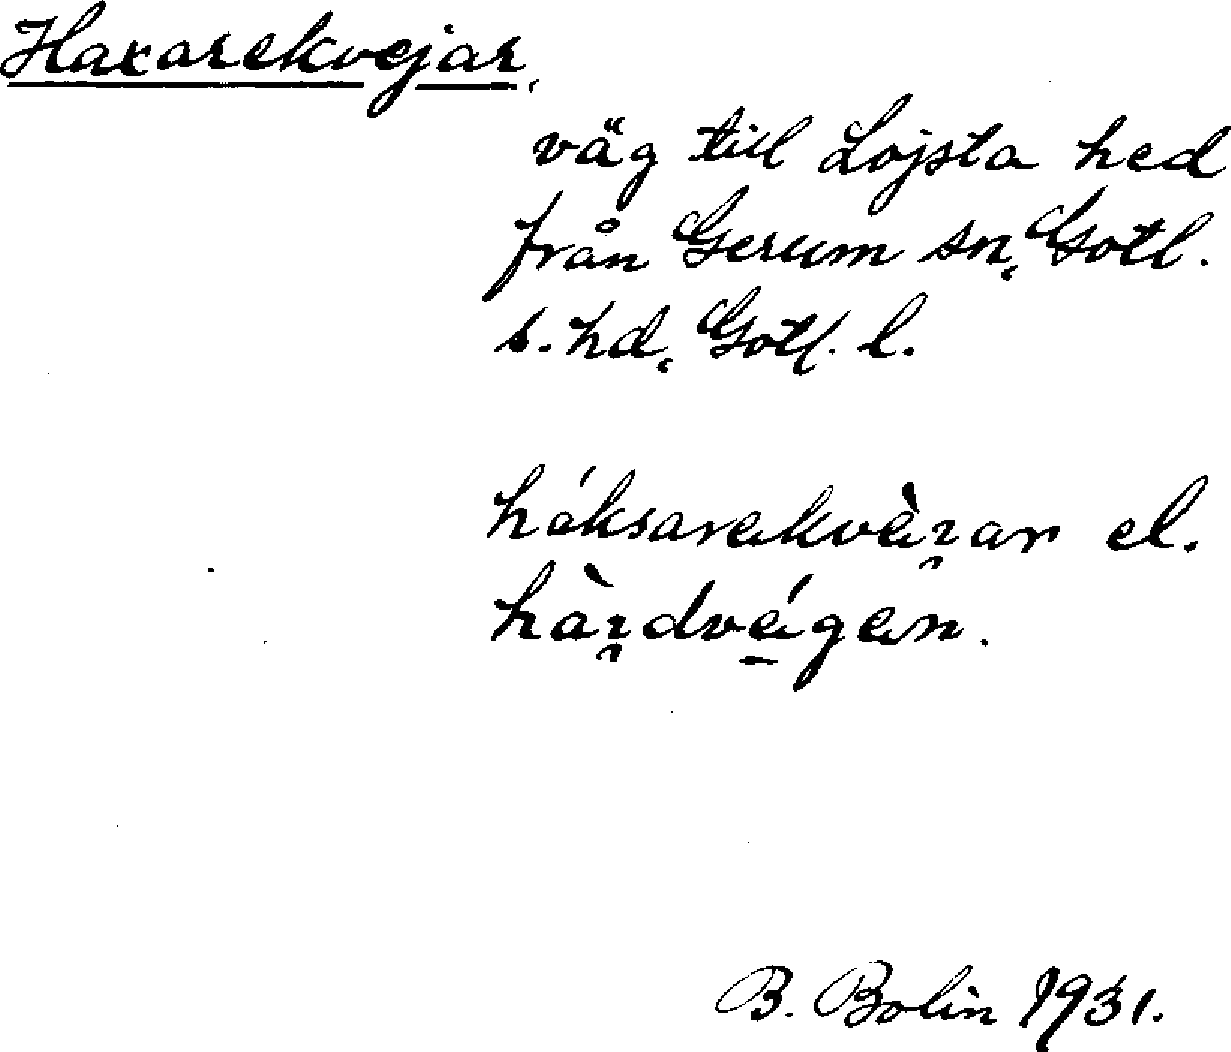 Haxarekvejar,
väg till Lojsta hed
från Gerum sn, Gotl.
s. hd, Gotl. l.
háksarekvàı̯ar el.
hàı̯dvä́gen.
B. Bolin 1931.